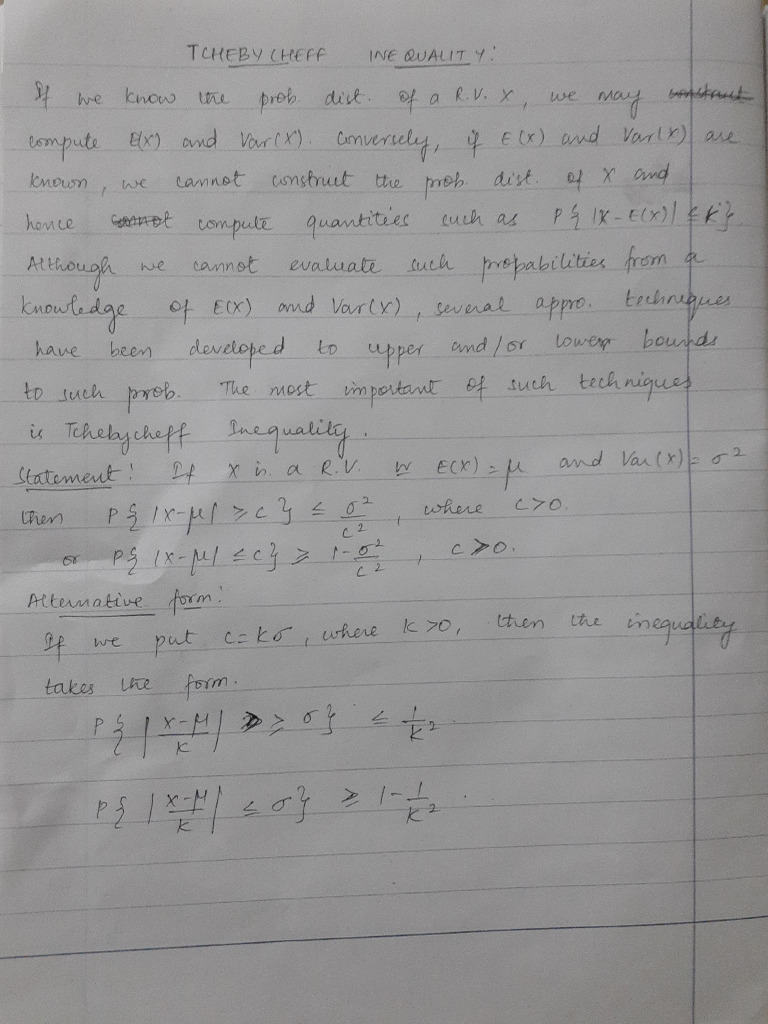 TCHEBYCHEFF INEQUALITY:
If we know the prob. dist. of a R.V. X, we may construct
compute E(X) and Var(X). Conversely, if E(X) and Var(X) are
known, we cannot construct the prob. dist. of X and
hence cannot compute quantities such as P{ |X-E(X)| ≤ K}
Although we cannot evaluate such probabilities from a
knowledge of E(X) and Var(X), several appro. techniques
have been developed to upper and/or lower bounds
to such prob. The most important of such techniques
is Tchebycheff Inequality.
Statement: If X is a R.V. w E(X) = μ and Var(X) = σ²
then P{ |X-μ| ≥ c } ≤ σ²/c², where c>0.
or P{ |X-μ| ≤ c} ≥ 1-σ²/c², c>0.
Alternative form:
If we put c=kσ, where k>0, then the inequality
takes the form.
P{ |X-μ/K| ≥ σ} ≤ 1/K².
P{ |X-μ/K| ≤ σ} ≥ 1-1/K².